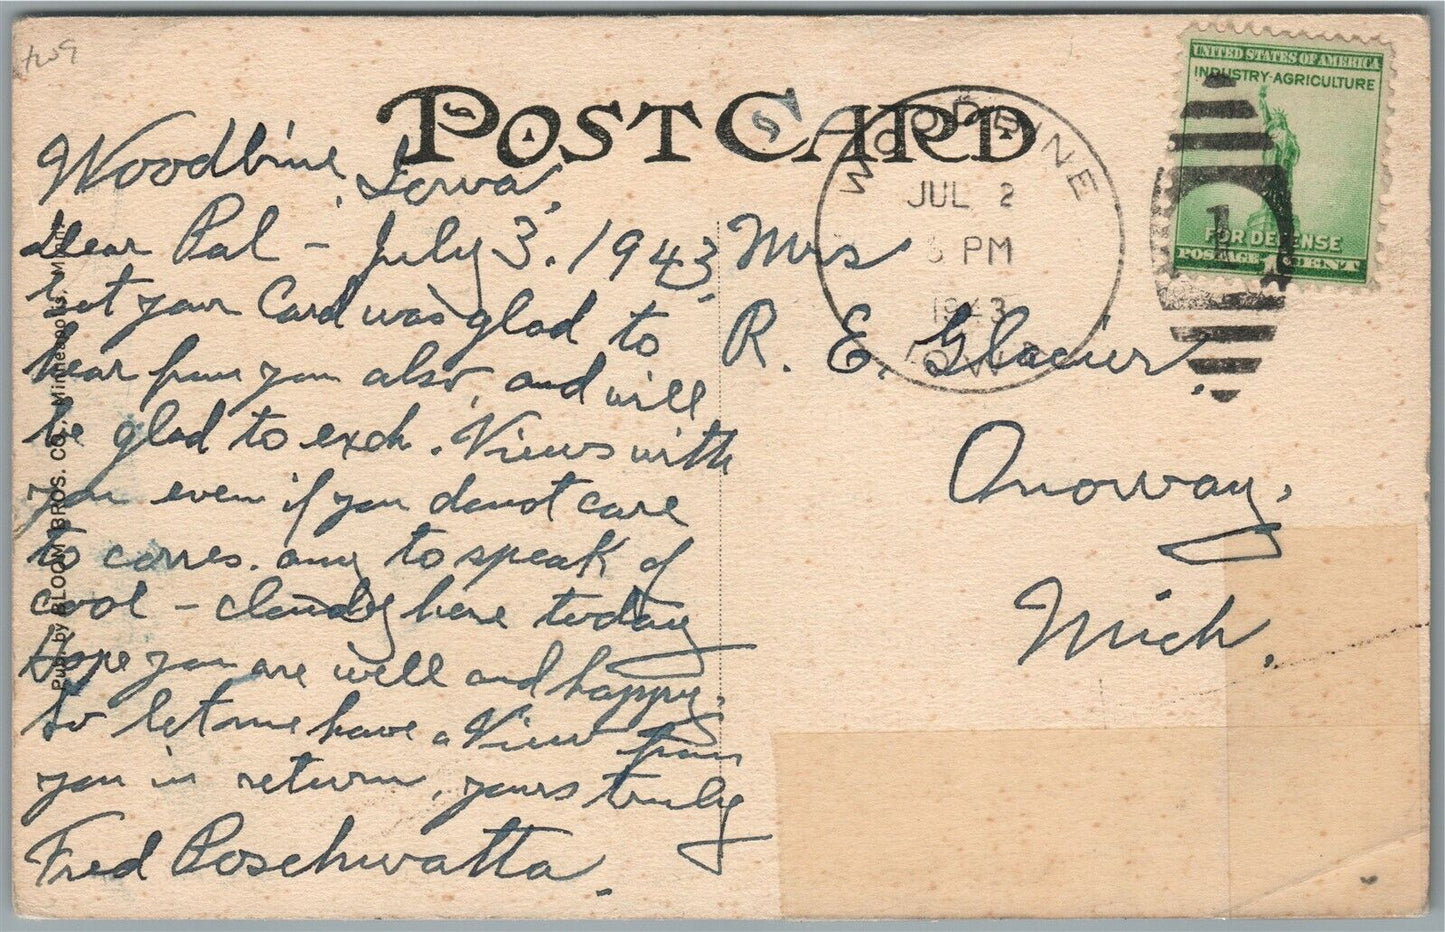 POST CARD
Woodbine, Iowa,
Dear Pal - July 3. 1943.
your Card was glad to
hear from you also, and will
be glad to exch. Views with
you even if you donot care
to corres. any to speak of
cool - cloudy here today
Hope you are well and happy.
So let me have a View from
you in return, yours truly
Fred Poschwatta.
Pub. by BLOOM BROS. CO., Minneapolis, Minn.
WOODBINE
JUL 2
PM
1943
IOWA
UNITED STATES OF AMERICA
INDUSTRY-AGRICULTURE
FOR DEFENSE
POSTAGE 1 CENT
1
Mrs
R. E. Glacier,
Onoway,
Mich.